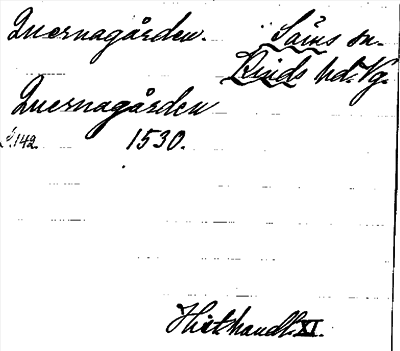 Quernagården. Säms sn.
Kinds hd. Vg.
Quernagården
s. 142. 1530.
Hist. handl. XI.